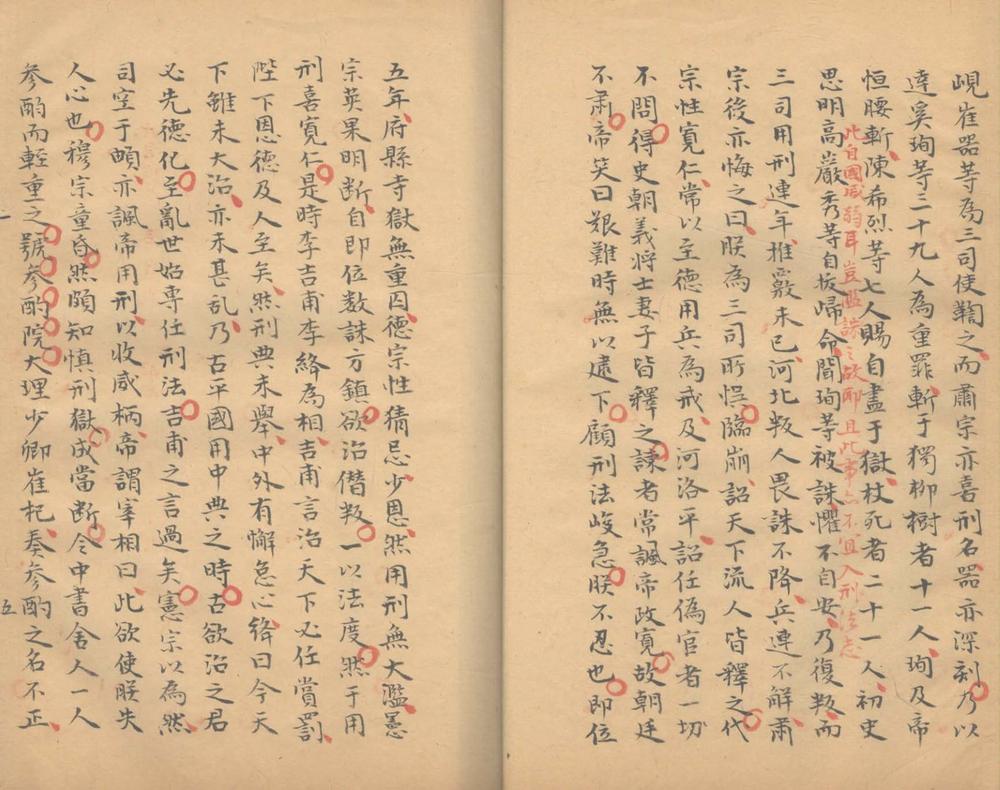 峴崔器等為三司使鞫之而肅宗亦喜刑名器亦深刻乃以
達奚珣等三十九人為重罪斬于獨柳樹者十一人珣及韋
恒腰斬陳希烈等七人賜自盡于獄杖死者二十一人初史
思明高巖秀等自拔歸命聞珣等被誅懼不自安乃復叛而
此自國威弱耳豈濫誅之故耶且此事亦不宜入刑法志
三司用刑連年推覈未已河北叛人畏誅不降兵連不解肅
宗後亦悔之曰朕為三司所悞臨崩詔天下流人皆釋之代
宗性寬仁常以至德用兵為戒及河洛平詔任偽官者一切
不問得史朝義將士妻子皆釋之諫者常諷帝政寬故朝廷
不肅帝笑曰艱難時無以逮下顧刑法峻急朕不忍也即位
五年府縣寺獄無重囚德宗性猜忌少恩然用刑無大濫憲
宗英果明斷自即位數誅方鎮欲治僭叛一以法度然于用
刑喜寬仁是時李吉甫李絳為相吉甫言治天下必任賞罰
陛下恩德及人至矣然刑典未舉中外有懈怠心絳曰今天
下雖未大治亦未甚乱乃古平國用中典之時古欲治之君
必先德化至亂世始專任刑法吉甫之言過矣憲宗以為然
司空于頔亦諷帝用刑以收威柄帝謂宰相曰此欲使朕失
人心也穆宗童昏然頗知慎刑獄成當斷令中書舍人一人
參酌而輕重之號參酌院大理少卿崔杞奏參酌之名不正
五